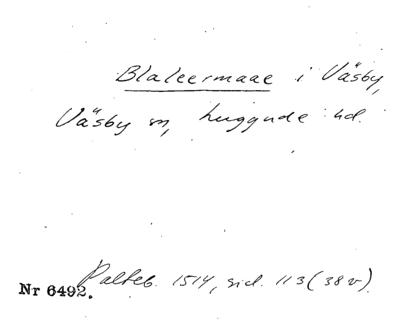 Blaleermaae i Väsby,
Väsby sn, Luggude hd.
Palteb. 1514, sid. 113 (38 v).
Nr 6492.